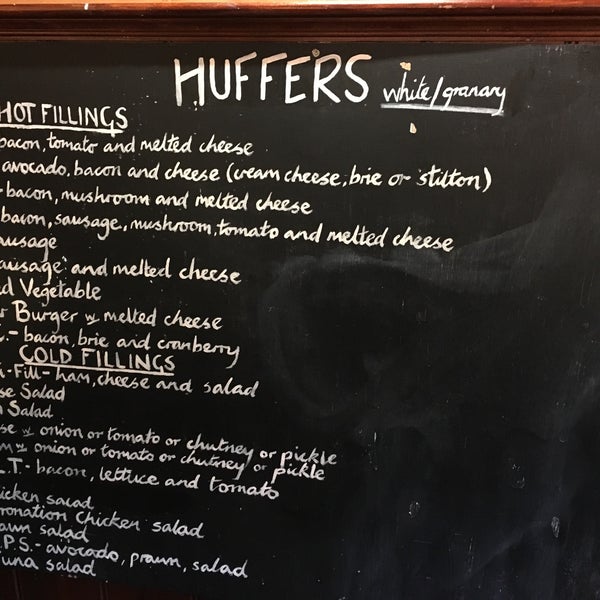 HUFFERS white/granary
HOT FILLINGS
bacon, tomato and melted cheese
avocado, bacon and cheese (cream cheese, brie or stilton)
- bacon, mushroom and melted cheese
bacon, sausage, mushroom, tomato and melted cheese
ausage
ausage and melted cheese
ed Vegetable
Burger w melted cheese
.- bacon, brie and cranberry
COLD FILLINGS
-Fill- ham, cheese and salad
se Salad
Salad
se w onion or tomato or chutney or pickle
m w onion or tomato or chutney or pickle
L.T- bacon, lettuce and tomato
icken salad
ronation Chicken salad
awn salad
.P.S.- avocado, prawn, salad
una salad